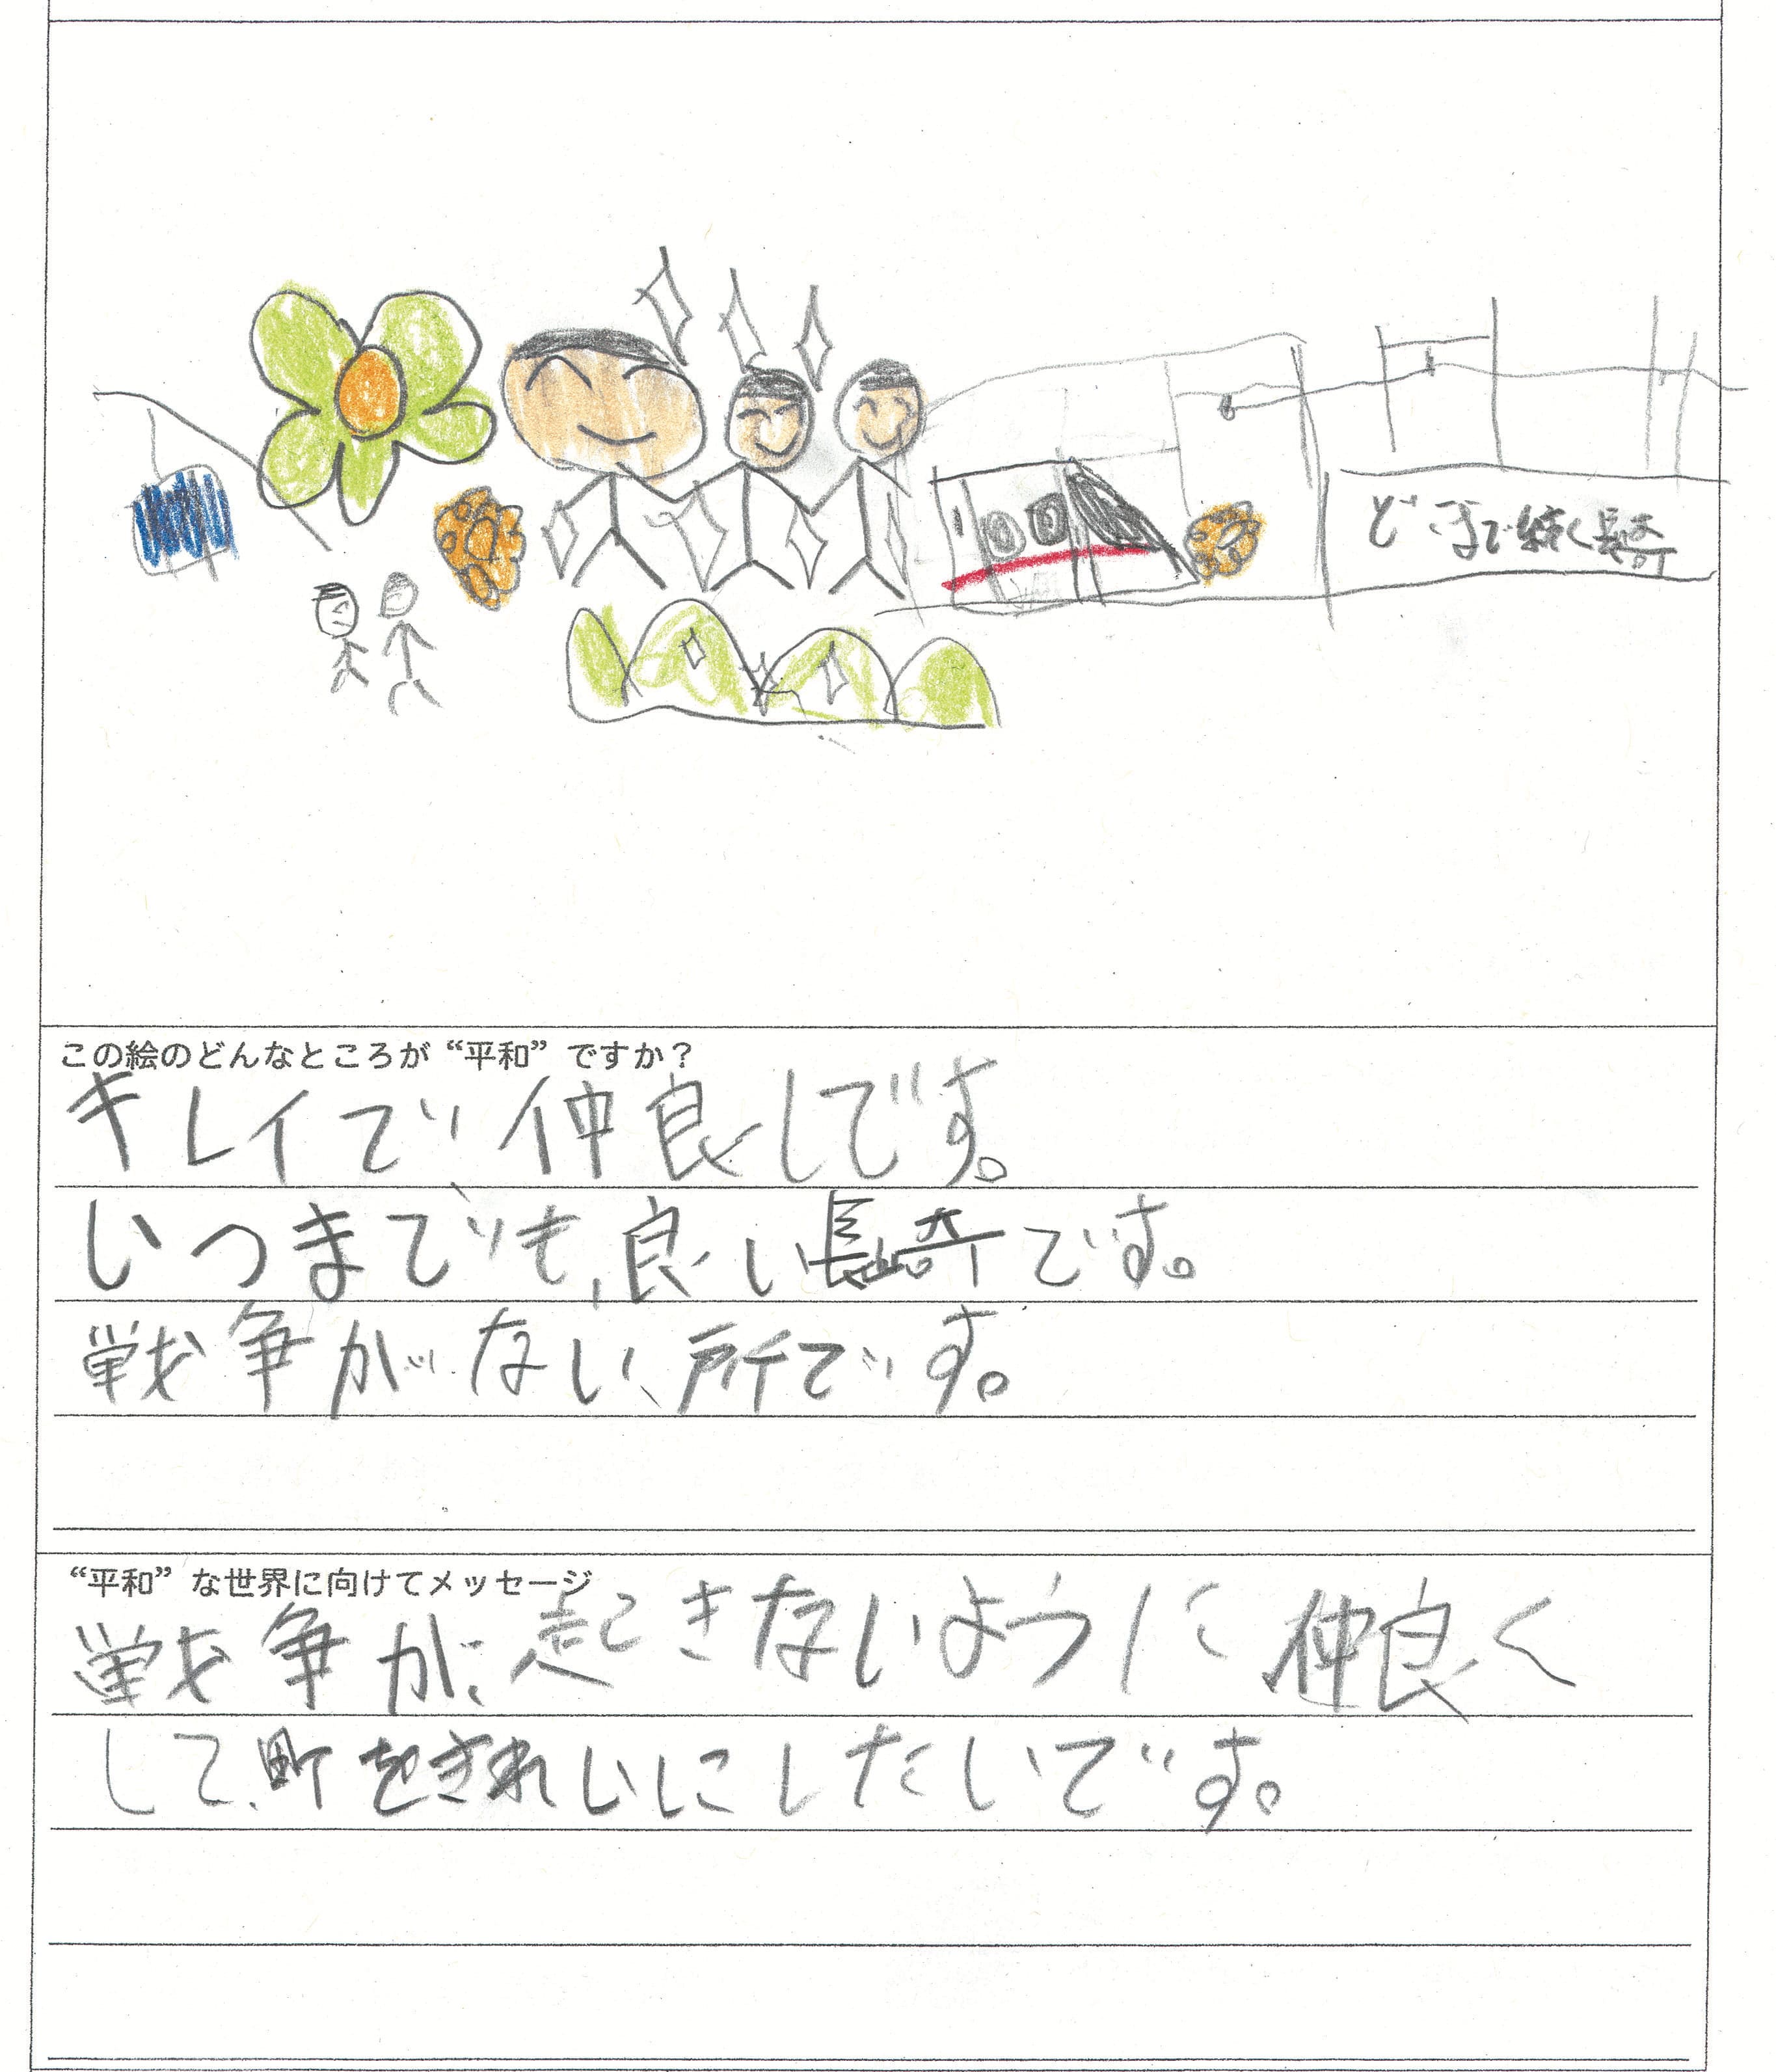 どこまで続く長崎
この絵のどんなところが“平和”ですか？
キレイで、仲良しです。
いつまでも、良い長崎です。
戦争がない、所です。
“平和”な世界に向けてメッセージ
戦争が起きないように仲良く
して、町をきれいにしたいです。